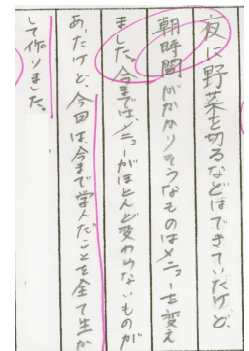 夜に野菜を切るなどはできていたけど、
朝時間がかかりそうなものはメニューを変え
ました。今までは、メニューがほとんど変わらないものが
あったけど、今回は、今まで学んだことを全て生か
して作りました。